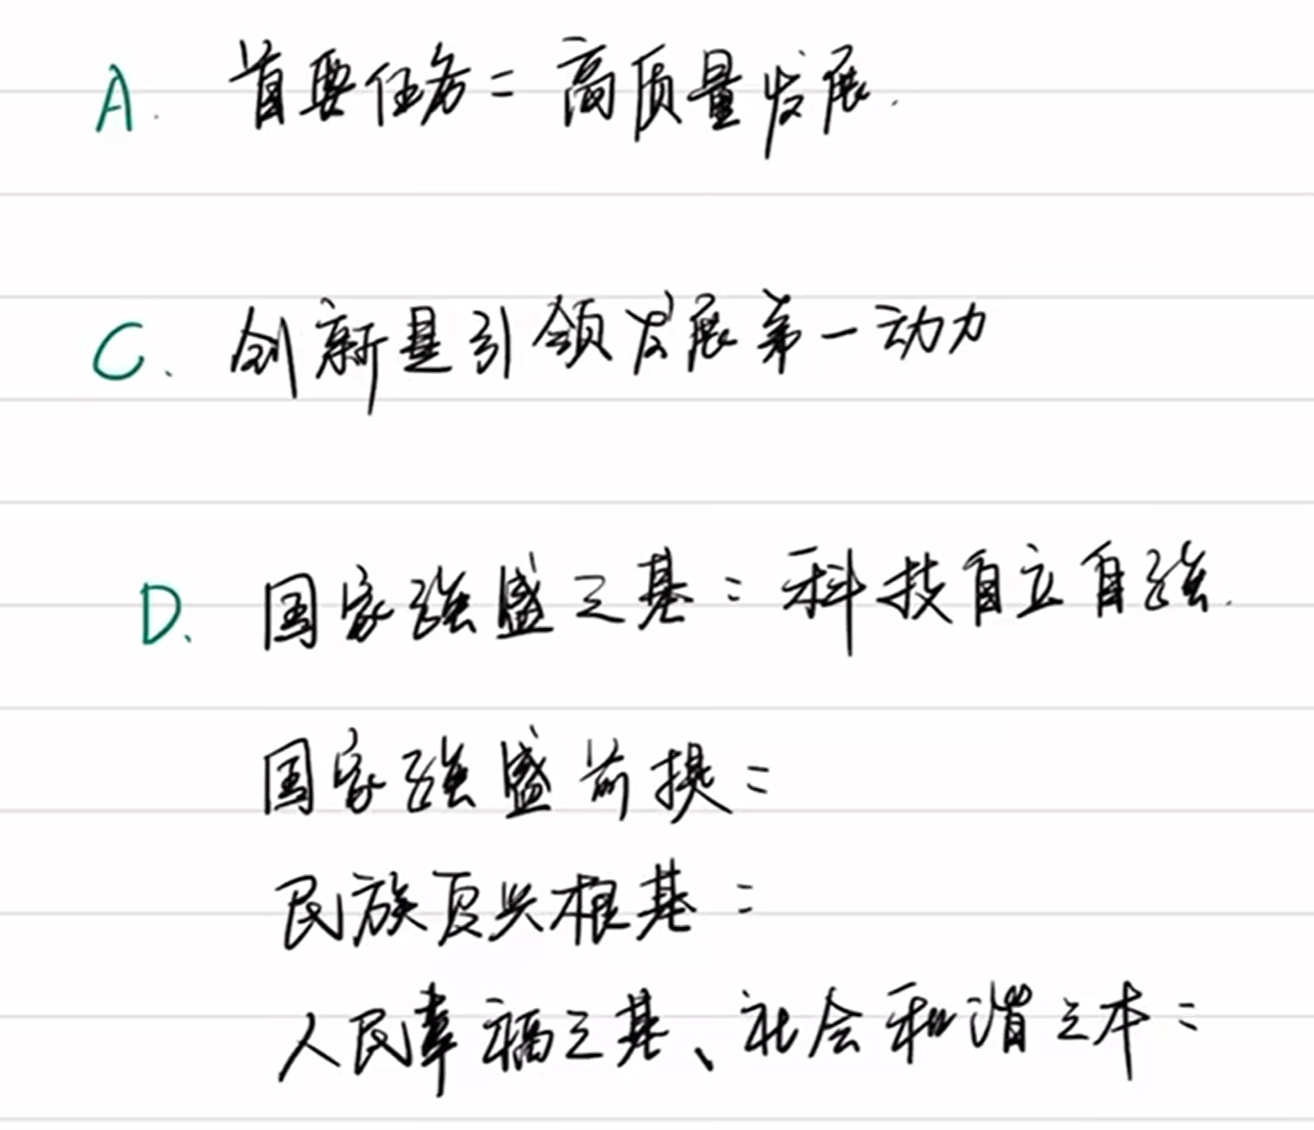 A. 首要任务=高质量发展.
C. 创新是引领发展第一动力
D. 国家强盛之基：科技自立自强.
国家强盛前提=
民族复兴根基：
人民幸福之基、社会和谐之本：